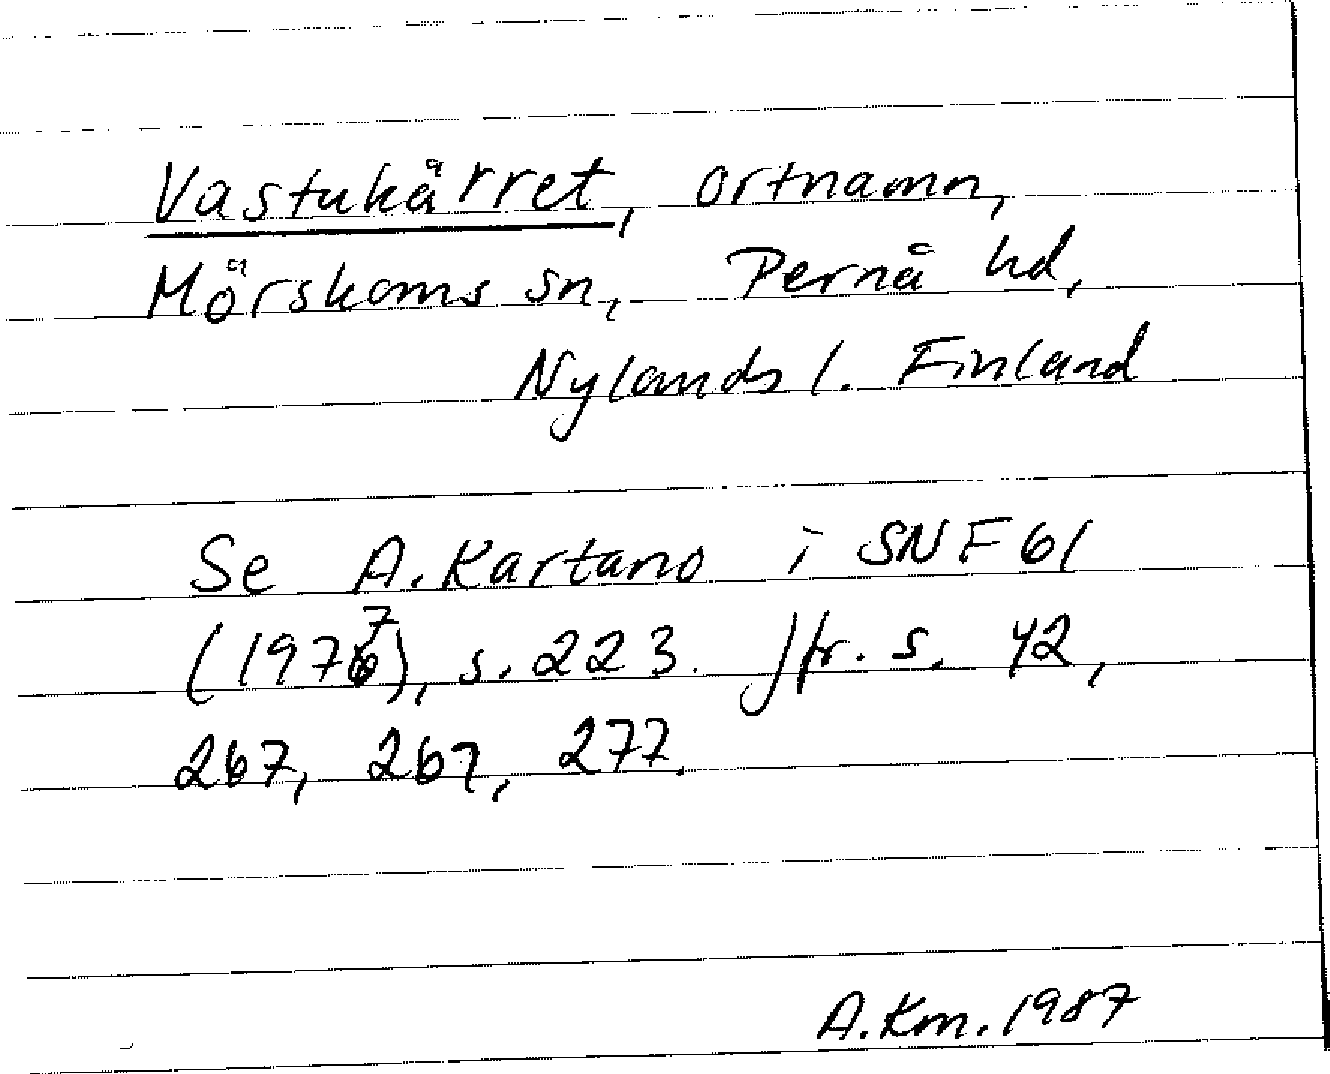 Vastukärret, ortnamn,
Mörskoms sn, Pernå hd,
Nylands l. Finland
Se A. Kartano i SNF 61
(1977), s. 223. Jfr. s. 42,
267, 267, 277.
A. Km. 1987